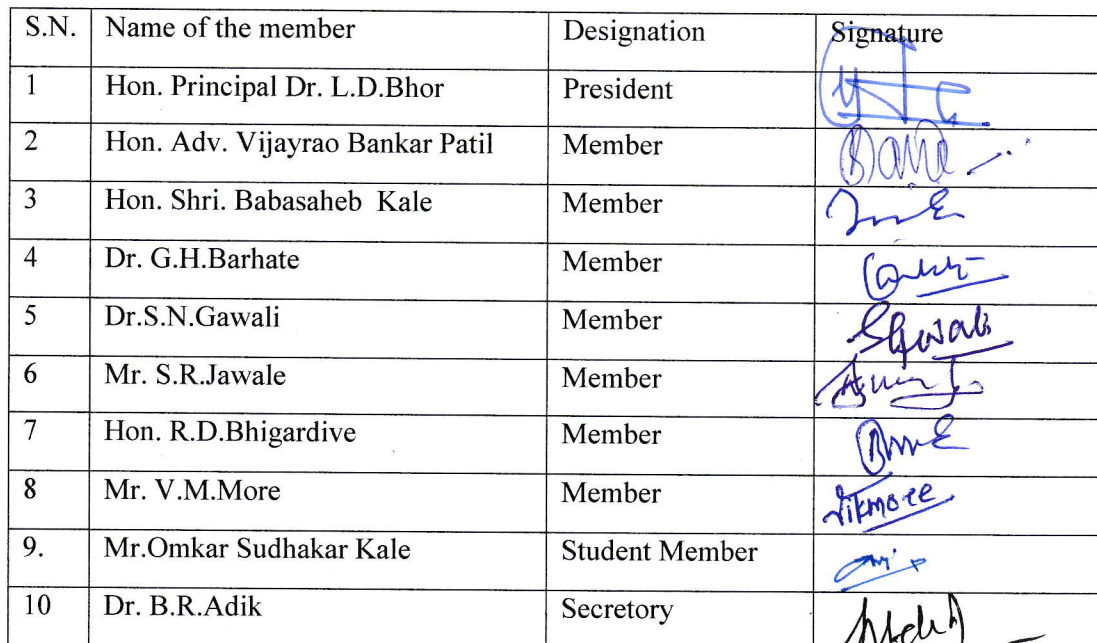 S.N. Name of the member Designation Signature
1 Hon. Principal Dr. L.D.Bhor President
2 Hon. Adv. Vijayrao Bankar Patil Member
3 Hon. Shri. Babasaheb Kale Member
4 Dr. G.H.Barhate Member
5 Dr.S.N.Gawali Member SGawali
6 Mr. S.R.Jawale Member
7 Hon. R.D.Bhigardive Member
8 Mr. V.M.More Member Vikmore
9. Mr.Omkar Sudhakar Kale Student Member
10 Dr. B.R.Adik Secretory